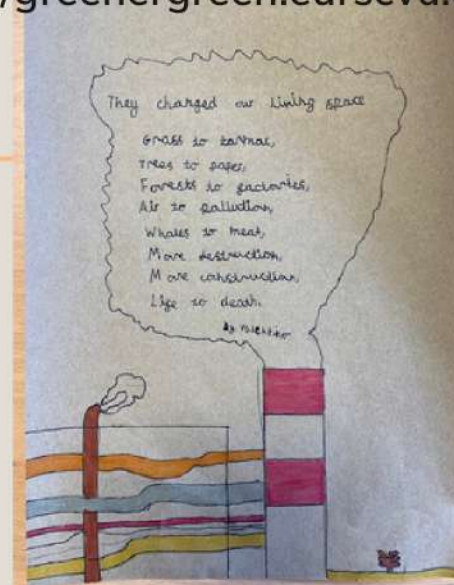 They changed our living space
Grass to tarmac,
Trees to paper,
Forests to factories,
Air to pollution,
Whales to meat,
More destruction,
More construction,
Life to death.
By